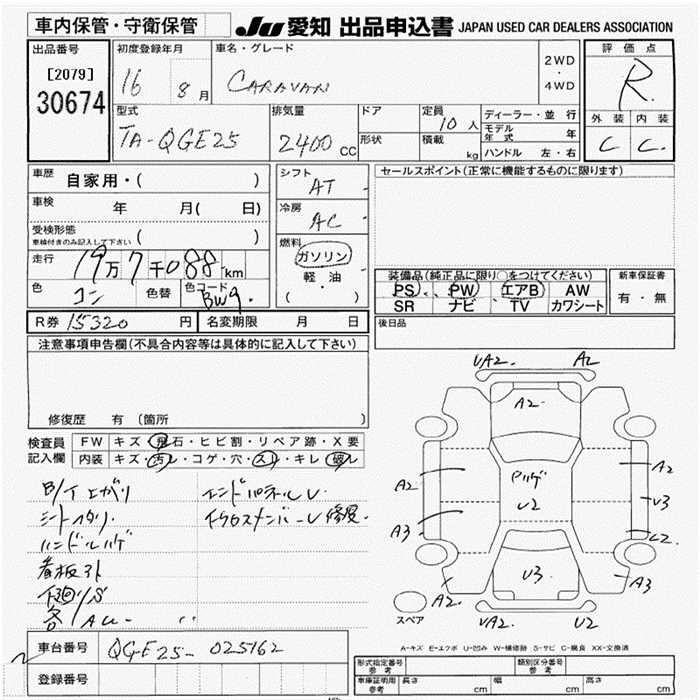 車内保管・守衛保管
JU 愛知 出品申込書 JAPAN USED CAR DEALERS ASSOCIATION
出品番号
[2079]
30674
初度登録年月
16 8月
車名・グレード
CARAVAN
2WD
・
4WD
評価点
R
外装 内装
C C
型式
TA-QGE25
排気量
2400 CC
ドア
形状
定員
10人
積載
kg
ディーラー・並行
モデル年式 年
ハンドル 左・右
車歴 自家用・( )
車検 年 月( 日)
受検形態
車検付きのみ記入して下さい ( )
走行 19万7千088km
色 コン 色替 色コード BW9
R券 15320円 名変期限 月 日
シフト
AT
冷房
AC
燃料
ガソリン
軽・油
( )
セールスポイント(正常に機能するものに限ります)
装備品(純正品に限り○をつけてください)
PS PW エアB AW
SR ナビ TV カワシート
新車保証書
有・無
後日品
注意事項申告欄(不具合内容等は具体的に記入して下さい)
修復歴 有 (箇所 )
検査員記入欄
FW キズ・飛石・ヒビ割・リペア跡・X要
内装 キズ・汚レ・コゲ・穴・スレ・キレ・破レ
シートヘタリ
ハンドルハゲ
看板引
下廻りS
エンドパネルU
UA2 A2
A2
A2
A3
U2
U3
A2
U3
U2
A3
A2
UA2 U2
スペア
A-キズ E-エクボ U-凹み W-補修跡 S-サビ C-腐食 XX-交換済
車台番号 QGE25-025162
登録番号
形式指定番号 参考
類別区分番号 参考
車庫証明用 参考 長さ cm 幅 cm 高さ cm